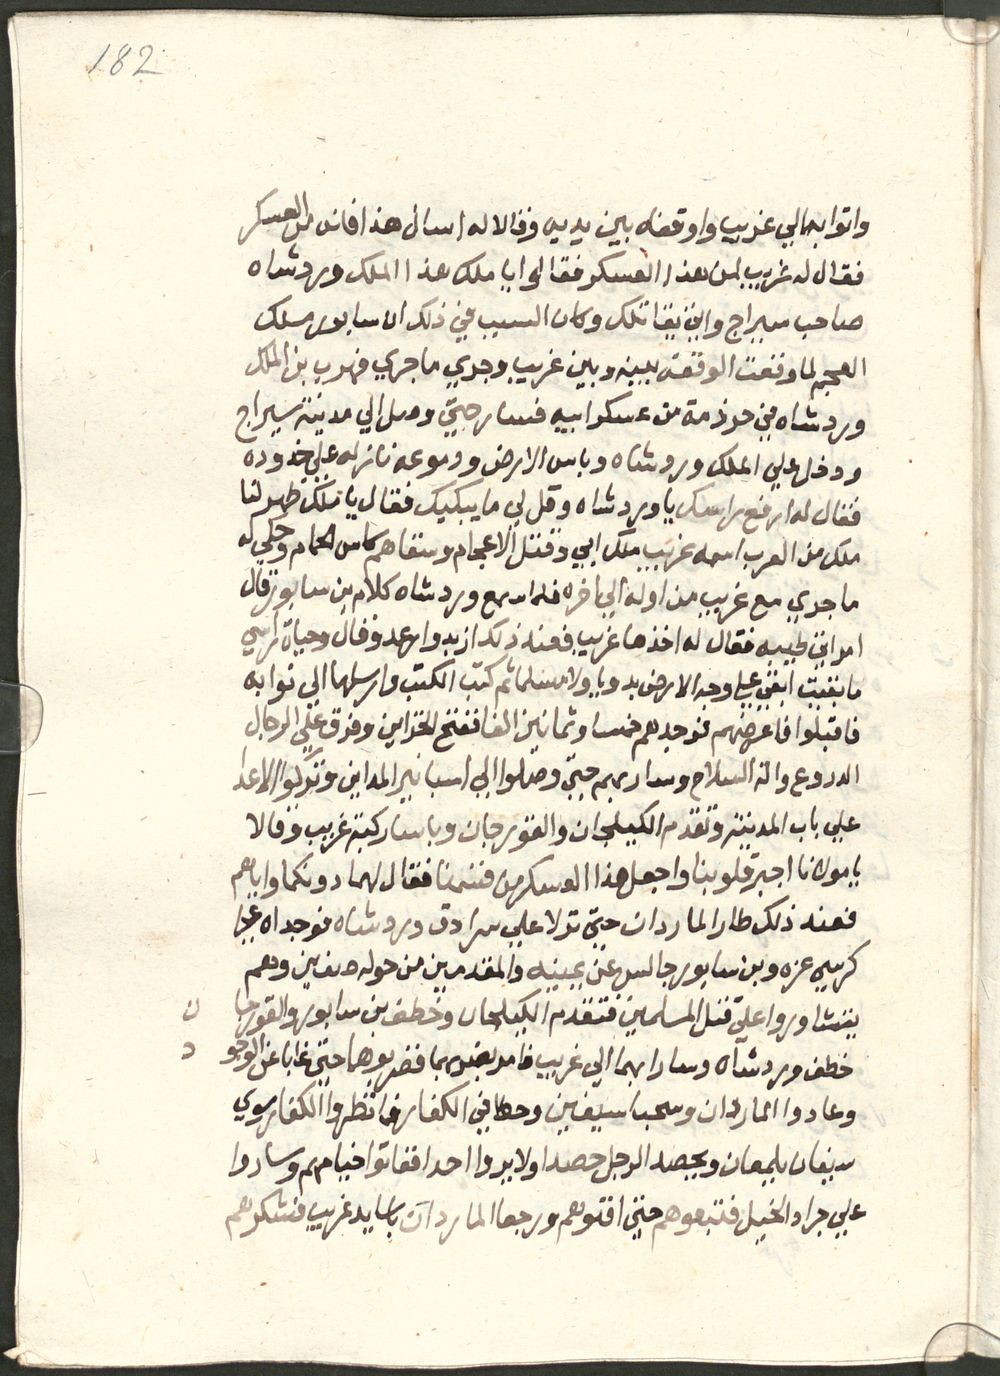 182
واتوا بهما الي غريب واوقفاه بين يديه وقالا له اسال هذا فانه من العسكر
فقال له غريب لمن هذا العسكر فقال يا ملك هذا الملك وردشاه
صاحب سيراج واتي يقاتلك وكان السبب في ذلك ان سابور ملك
العجم لما وقعت الوقعة بينه وبين غريب وجري ما جري فهرب بن الملك
وردشاه في حوذمة من عسكر ابيه فسار حتي وصل الي مدينة سيراج
ودخل علي الملك وردشاه وباس الارض ودموعه نازله علي خدوده
فقال له ارفع راسك يا وردشاه وقل لي ما يبكيك فقال يا ملك ظهر لنا
ملك من العرب اسمه غريب ملك ابي وقتل الاعجام وسقاهم كاس الحمام وحكي له
ما جري مع غريب من اوله الي اخره فلما سمع وردشاه كلام بن سابور قال
امراتي طيبه فقال له اخذها غريب فعند ذلك ازبد وارعد وقال وحياة راسي
ما بقيت ابقي علي وجه الارض بدويا ولا مسلما ثم كتب الكتب وارسلها الي نوابه
فاقبلوا فاعرضهم فوجدهم خمسا وثمانين الفا ففتح الخزاين وفرق علي الرجال
الدروع والة السلاح وسار بهم حتي وصلوا الي اسبانير المداين ونزلوا الاعدا
علي باب المدينة وتقدم الكيلجان والقورجان وباسا ركبة غريب وقالا
يا مولانا اجبر قلوبنا واجعل هذا العسكر من قسمنا فقال لهما دونكما واياهم
فعند ذلك طار الماردان حتي نزلا علي سرادق وردشاه فوجداه علي
كرسي عزه وبن سابور جالس عن يمينه والمقدمين من حوله صفين وهم
يتشاوروا علي قتل المسلمين فتقدم الكيلجان وخطف بن سابور والقورجا ن
خطف وردشاه وسارا بهما الي غريب فامر بضربهما فضربوهما حتي غابا عن الوجو د
وعادوا الماردان وسحبا سيفين وحطا في الكفار فما نظروا الكفار سوي
سيفان يلمعان ويحصد الرجل حصدا ولا يروا احدا ففاتوا خيامهم وساروا
علي جراد الخيل فتبعوهم حتي افنوهم ورجعا الماردان باسا يد غريب فشكرهم